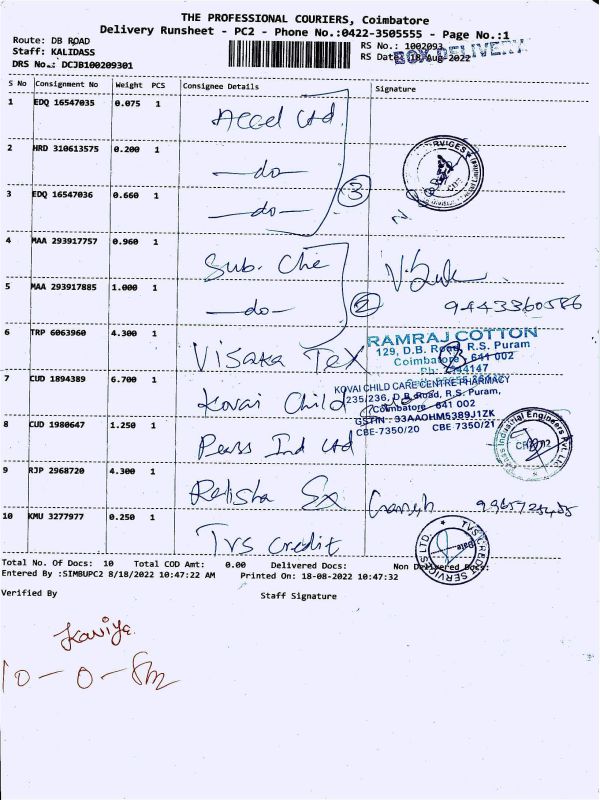 THE PROFESSIONAL COURIERS, Coimbatore
Delivery Runsheet - PC2 - Phone No.:0422-3505555 - Page No.:1
Route: DB ROAD
Staff: KALIDASS
DRS No.: DCJB100209301
RS No.: 1002093
RS Date: 18-Aug-2022
BOX DELIVERY
S No Consignment No Weight PCS Consignee Details Signature
1 EDQ 16547035 0.075 1 Accel Ltd.
2 HRD 310613575 0.200 1 —do—
3 EDQ 16547036 0.660 1 —do—
3
4 MAA 293917757 0.960 1 Sub. Che
5 MAA 293917885 1.000 1 —do—
2
9443360586
6 TRP 6063960 4.300 1 Visaka Tex
RAMRAJ COTTON
129, D.B. Road, R.S. Puram
Coimbatore 641 002
7 CUD 1894389 6.700 1 Kovai Child
KOVAI CHILD CARE CENTRE PHARMACY
235/236, D.B.Road, R.S. Puram,
Coimbatore 641 002
GSTIN : 33AAOHM5389J1ZK
CBE-7350/20 CBE 7350/21
8 CUD 1980647 1.250 1 Pears Ind Ltd
Industrial Engineers Pvt. Ltd.
9 RJP 2968720 4.300 1 Relisha Sx Ganesh
10 KMU 3277977 0.250 1 TVS Credit
TVS CREDIT SERVICES LTD.
Total No. Of Docs: 10 Total COD Amt: 0.00 Delivered Docs: Non Delivered Docs:
Entered By :SIMBUPC2 8/18/2022 10:47:22 AM Printed On: 18-08-2022 10:47:32
Verified By Staff Signature
Kaviya
10 - 0 -